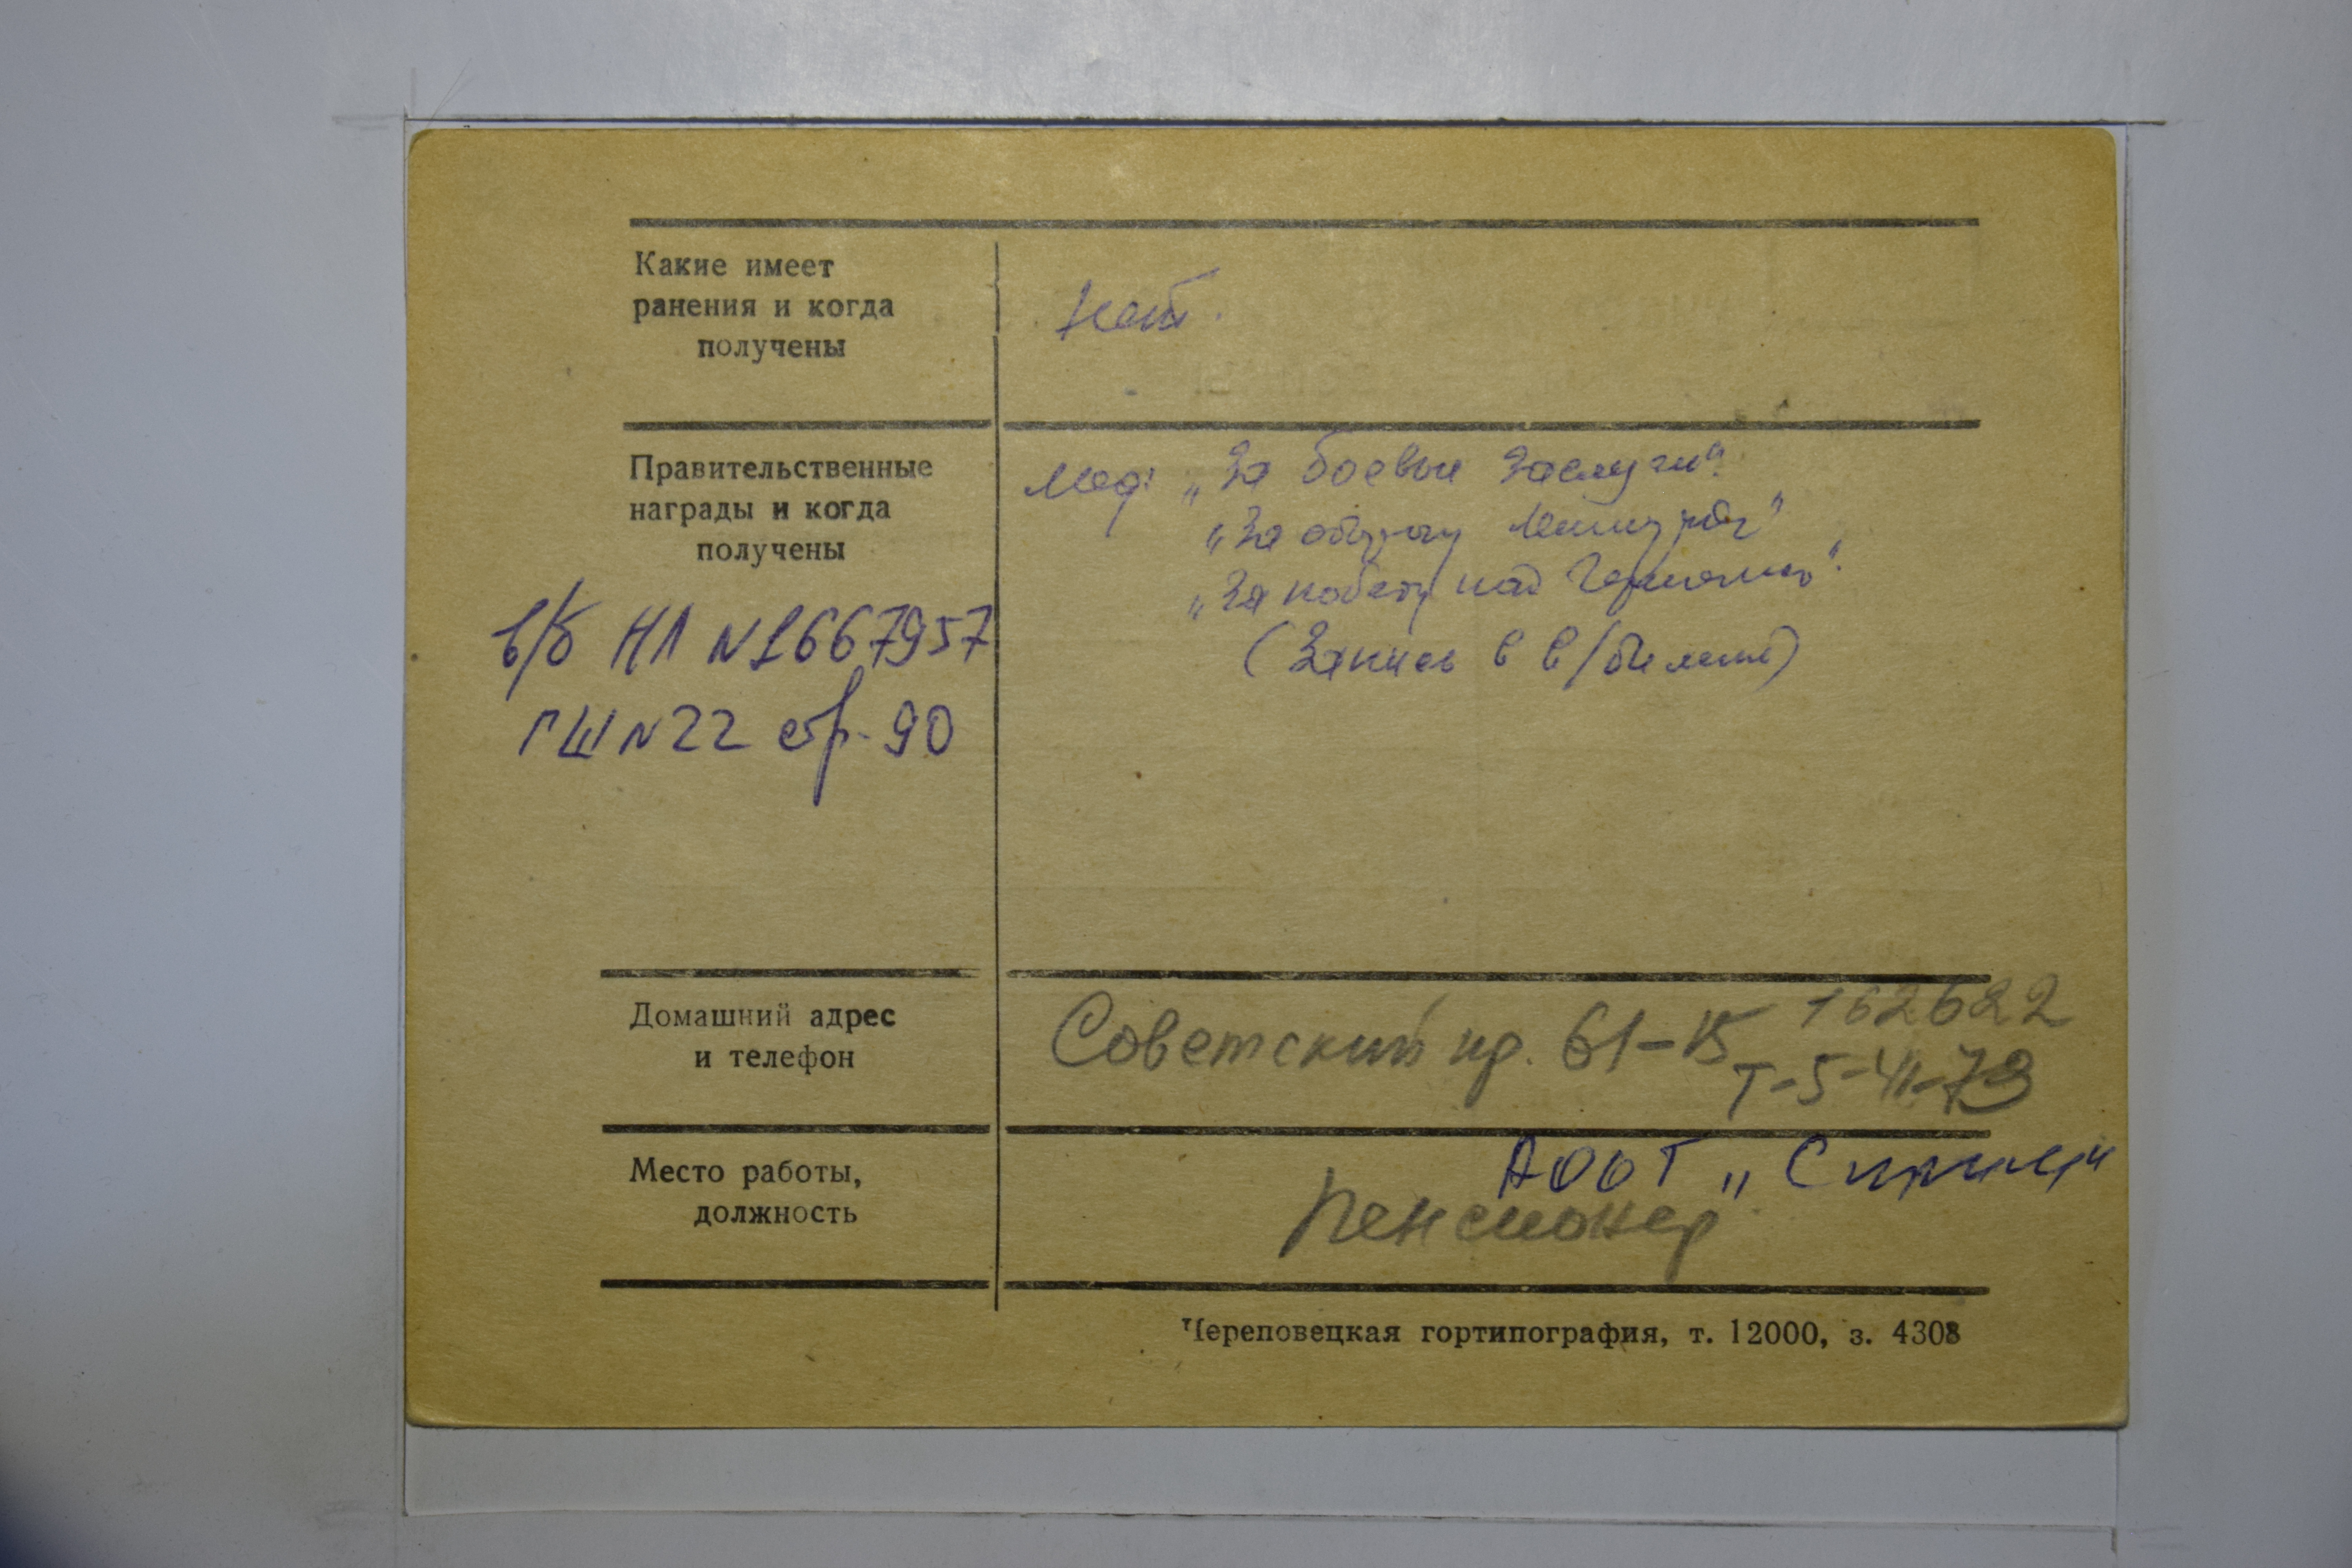 Какие имеет
ранения и когда
получены
Нет.
Правительственные
награды и когда
получены
Мед: „За боевые заслуги".
„За оборону Ленинграда"
„За победу над Германией".
(Запись в в/билете)
в/б НЛ №1667957
ГШ №22 стр. 90
Домашний адрес
и телефон
Советский пр. 61-15 162622
Т-5-41-79
Место работы,
должность
АООТ
Пенсионер
Череповецкая гортипография, т. 12000, з. 4308